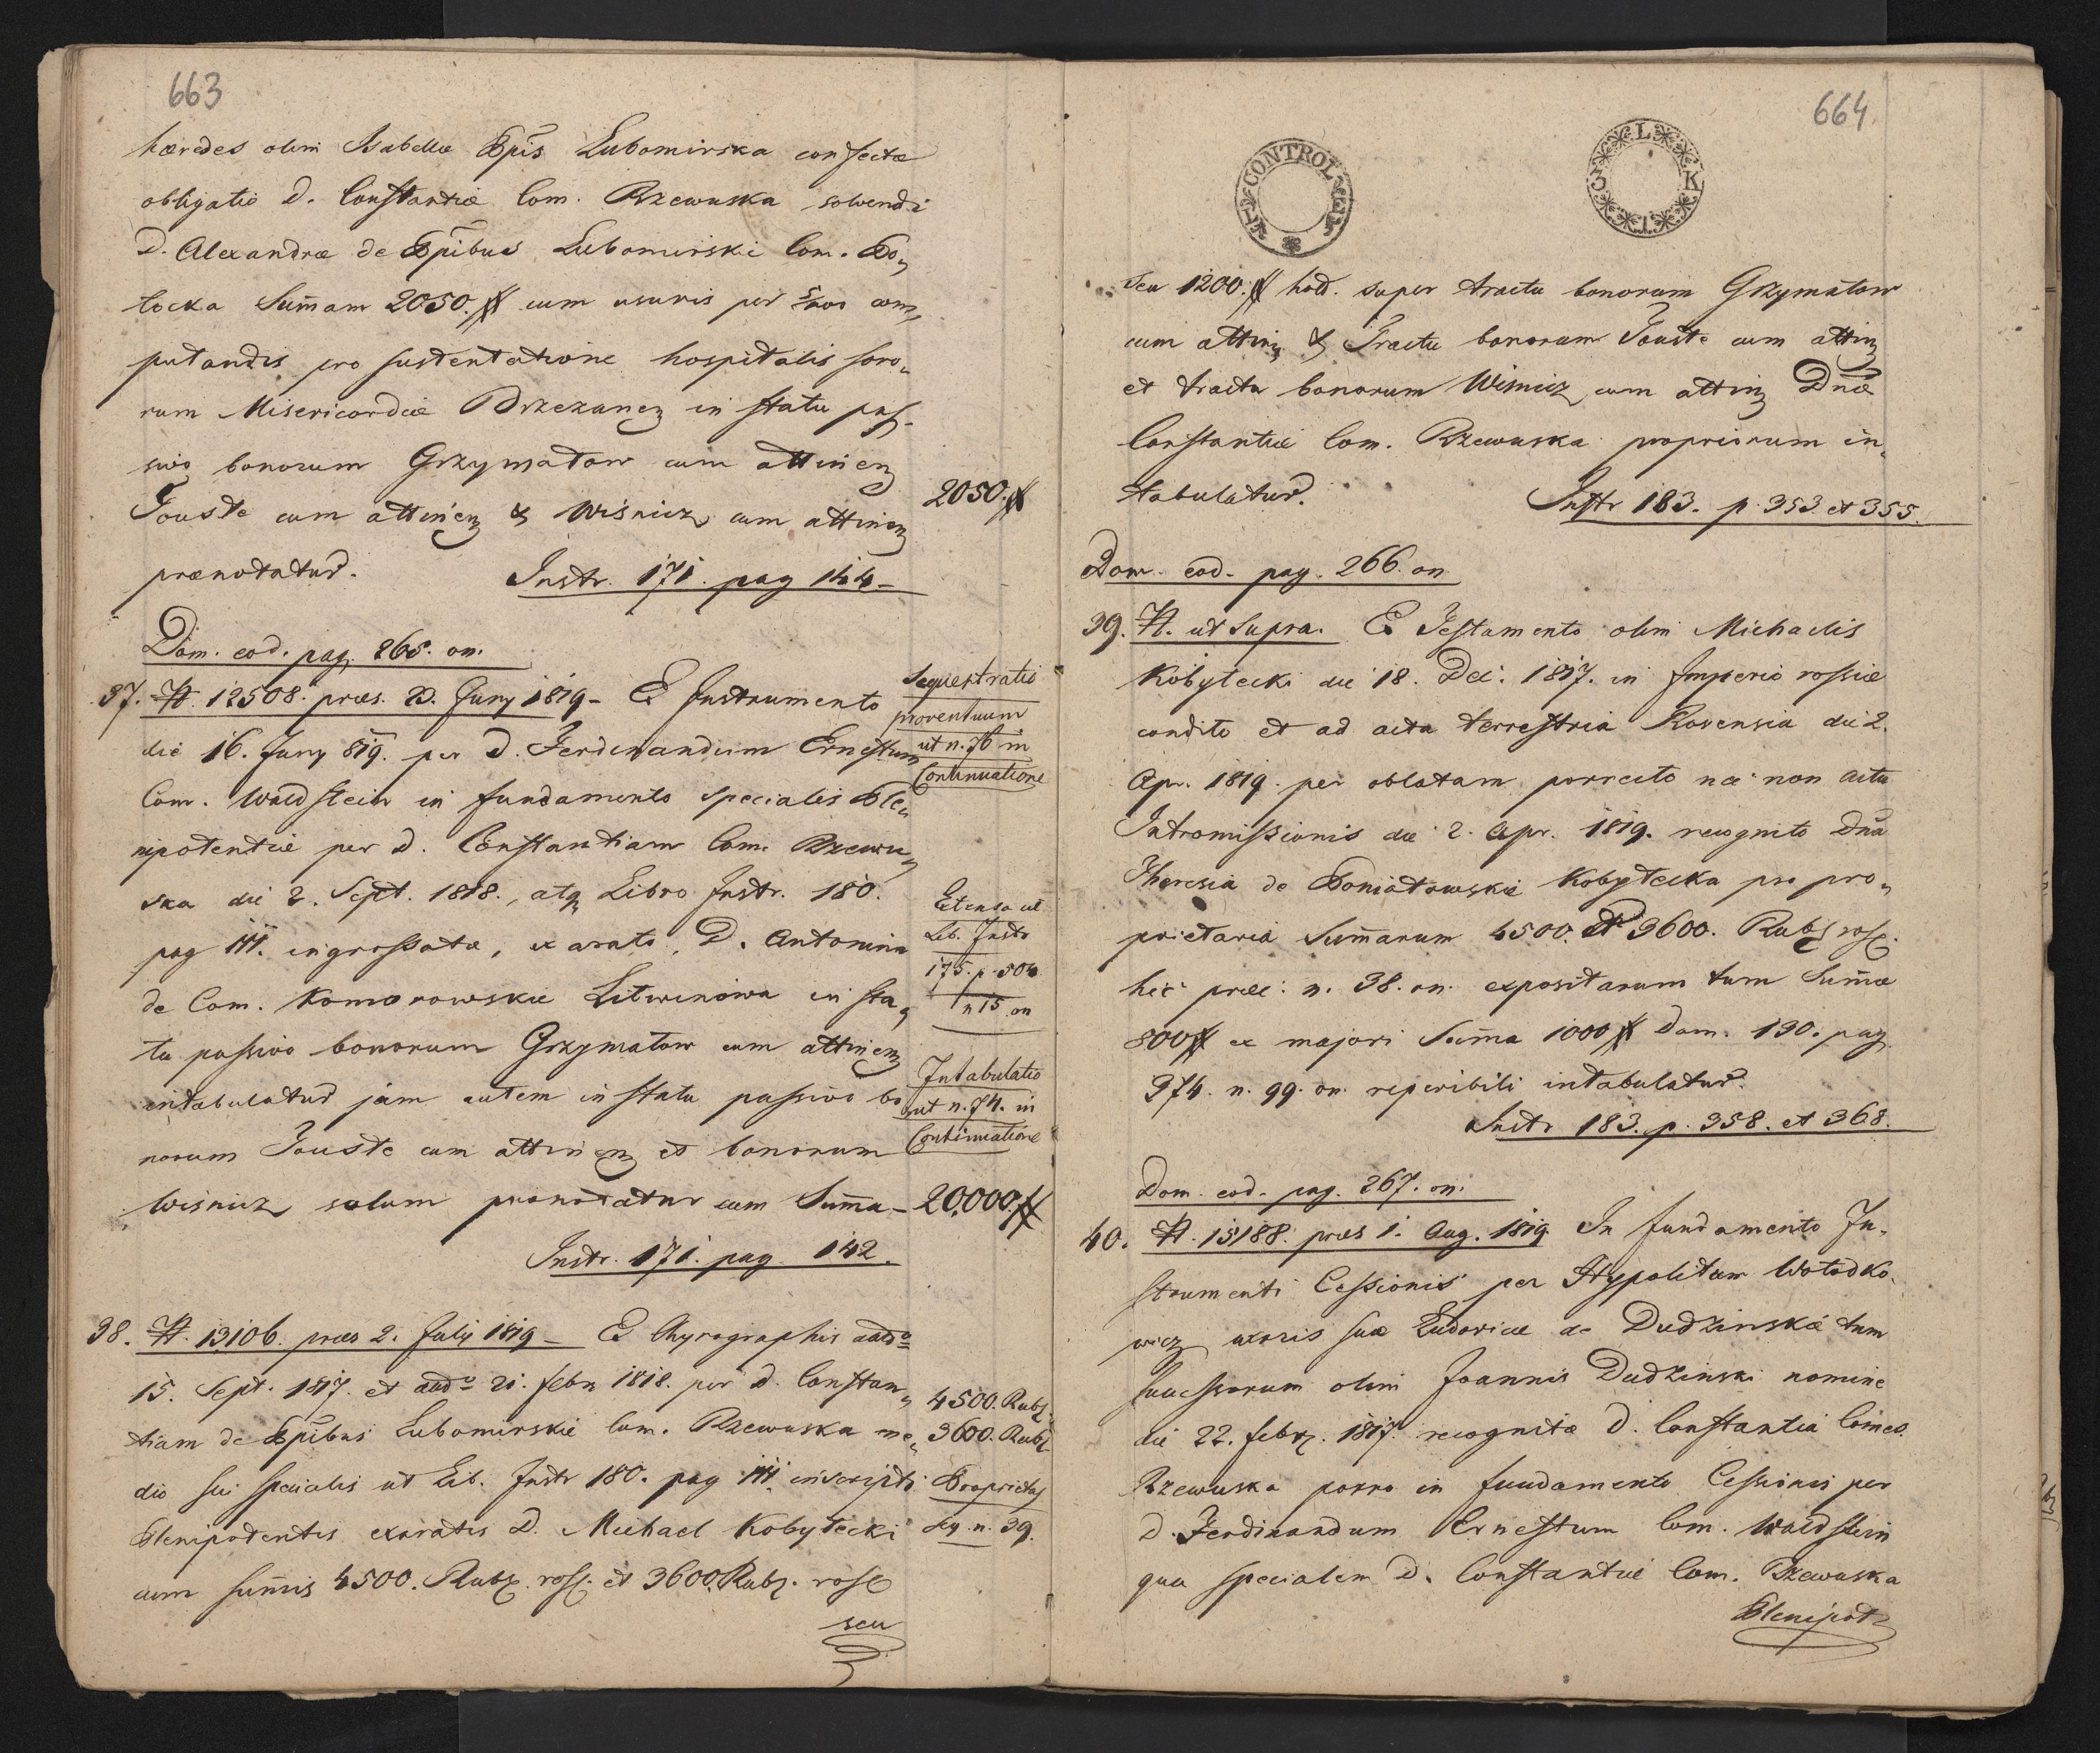 663
hæredes olim Isabellæ Ppis Lubomirska confectæ
obligatio D. Constantiæ Com. Rzewuska solvendi
D. Alexandræ de Ppibus Lubomirskie Com. Po„
tocka Summam 2050.# cum usuris per 5/100 com„
putandis pro sustentatione hospitalis soro„
rum Misericordiæ Brzezanen in statu pas„
sivo bonorum Grzymałow cum attinen
Touste cum attinen & Wiśnicz cum attinen
prænotatur. Instr. 171. pag 144–
2050.#
Dom. eod. pag. 265. on.
37. H. 12508. præs. 23. Juny 1819– E Instrumento
die 16. Juny 819. per D. Ferdinandum Ernestum
Com. Waldstein in fundamento specialis Ple„
nipotentiæ per D. Constantiam Com. Rzewu„
ska die 2. Sept. 1818., atq Libro Instr. 180.
pag 111. ingrossatæ, exarato, D. Antonina
de Com. Komorowskie Litwinowa in sta„
tu passivo bonorum Grzymałow cum attinen
intabulatur jam autem in statu passivo bo„
norum Touste cum attinen et bonorum
Wiśnicz solum prænotatur cum Summa–
Instr. 171. pag. 142.
Sequestratio
proventuum
ut n. 76 in
Continuatione
Extensa ut
Lib. Instr
175. p. 504
n 15 on
Intabulatio
ut n. 74. in
Continuatione
20,000.#
38. H. 13106. præs 2. July 1819– E Chyrographis ddto
15. Sept. 1817. et ddto 21. febr 1818. per D. Constan„
tiam de Ppibus Lubomirskie Com. Rzewuska me„
dio sui specialis ut Lib. Instr 180. pag 111. inscripti
Plenipotentis exaratis D. Michael Kobyłecki
cum summis 4500. Rubl. ross. et 3600. Rubl. ross
seu
4500. Rubl.
3600. Rubl
Proprietas
seq. n. 39.
664
CONTROL
L K
seu 1200.# holl. super tractu bonorum Grzymałow
cum attin & Tractu bonorum Touste cum attin
et tractu bonorum Wiśnicz cum attin Dnæ
Constantiæ Com. Rzewuska propriorum in„
tabulatur. Instr 183. p. 353. et 355.
Dom. eod. pag. 266. on
39. H. ut supra. E Testamento olim Michaelis
Kobyłecki die 18. Dec. 1817. in Imperio rossiæ
condito et ad acta terrestria Rovensia die 2.
Apr. 1819. per oblatam porrecto nec non actu
Intromissionis die 2. Apr. 1819. recognito Dna
Theresia de Poniatowskie Kobyłecka pro pro„
prietaria Summarum 4500. et 3600. Rubl ross.
hic præc: n. 38. on. expositarum tum Summæ
800# ex majori Summa 1000# Dom. 130. pag
374. n. 99. on. reperibili intabulatur.
Instr 183. p. 358. et 368.
Dom. eod. pag. 267. on.
40. H. 15188. præs 1. Aug. 1819. In fundamento In„
strumenti Cessionis per Hypolitum Wołodko„
wicz uxoris suæ Ludovicæ de Dudzinskie tum
successorum olim Joannis Dudzinski nomine
die 22. febr. 1817. recognitæ D. Constantia Comes.
Rzewuska porro in fundamento Cessionis per
D. Ferdinandum Ernestum Com. Waldstein
qua specialem D. Constantiæ Com. Rzewuska
Plenipot